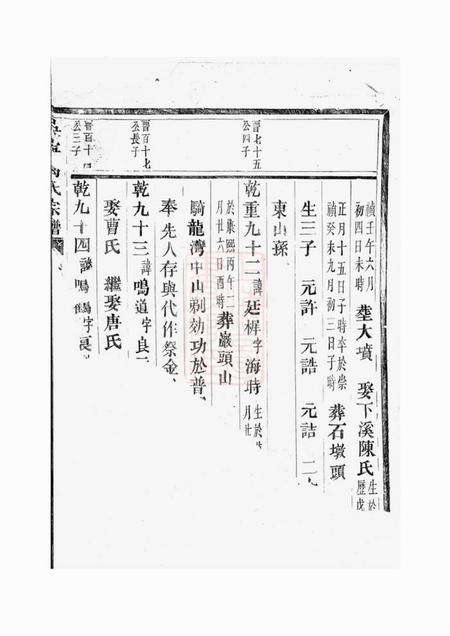 禎壬午六月初四日未時 塟大墳 娶下溪陳氏 生於歷戊
正月十五日子時卒於崇禎癸未九月初三日子時 葬石墩頭
生三子 元許 元誥 元詰 二
東山孫
晉七十五公四子
乾重九十二 諱 廷樨 字 海時 生於 月廿
於康熙丙午二月廿六日酉時 葬巖頭山
騎龍灣中山剃効功於普
奉先人存與代作祭金
晉百十七公長子
乾九十三 諱 鳴道 字 良
娶曹氏 繼娶唐氏
晉百十四公三子
乾九十四 諱 鳴鶴 字
氏宗譜